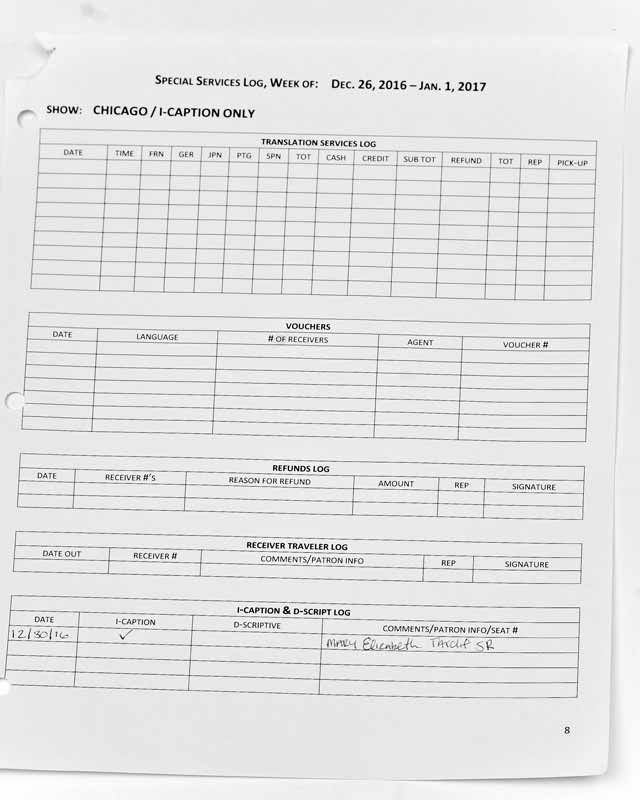 SPECIAL SERVICES LOG, WEEK OF: DEC. 26, 2016 – JAN. 1, 2017
SHOW: CHICAGO / I-CAPTION ONLY
TRANSLATION SERVICES LOG
DATE TIME FRN GER JPN PTG SPN TOT CASH CREDIT SUB TOT REFUND TOT REP PICK-UP
VOUCHERS
DATE LANGUAGE # OF RECEIVERS AGENT VOUCHER #
REFUNDS LOG
DATE RECEIVER #'S REASON FOR REFUND AMOUNT REP SIGNATURE
RECEIVER TRAVELER LOG
DATE OUT RECEIVER # COMMENTS/PATRON INFO REP SIGNATURE
I-CAPTION & D-SCRIPT LOG
DATE I-CAPTION D-SCRIPTIVE COMMENTS/PATRON INFO/SEAT #
12/30/16 ✓ MARY Elizabeth Tardif SR
8